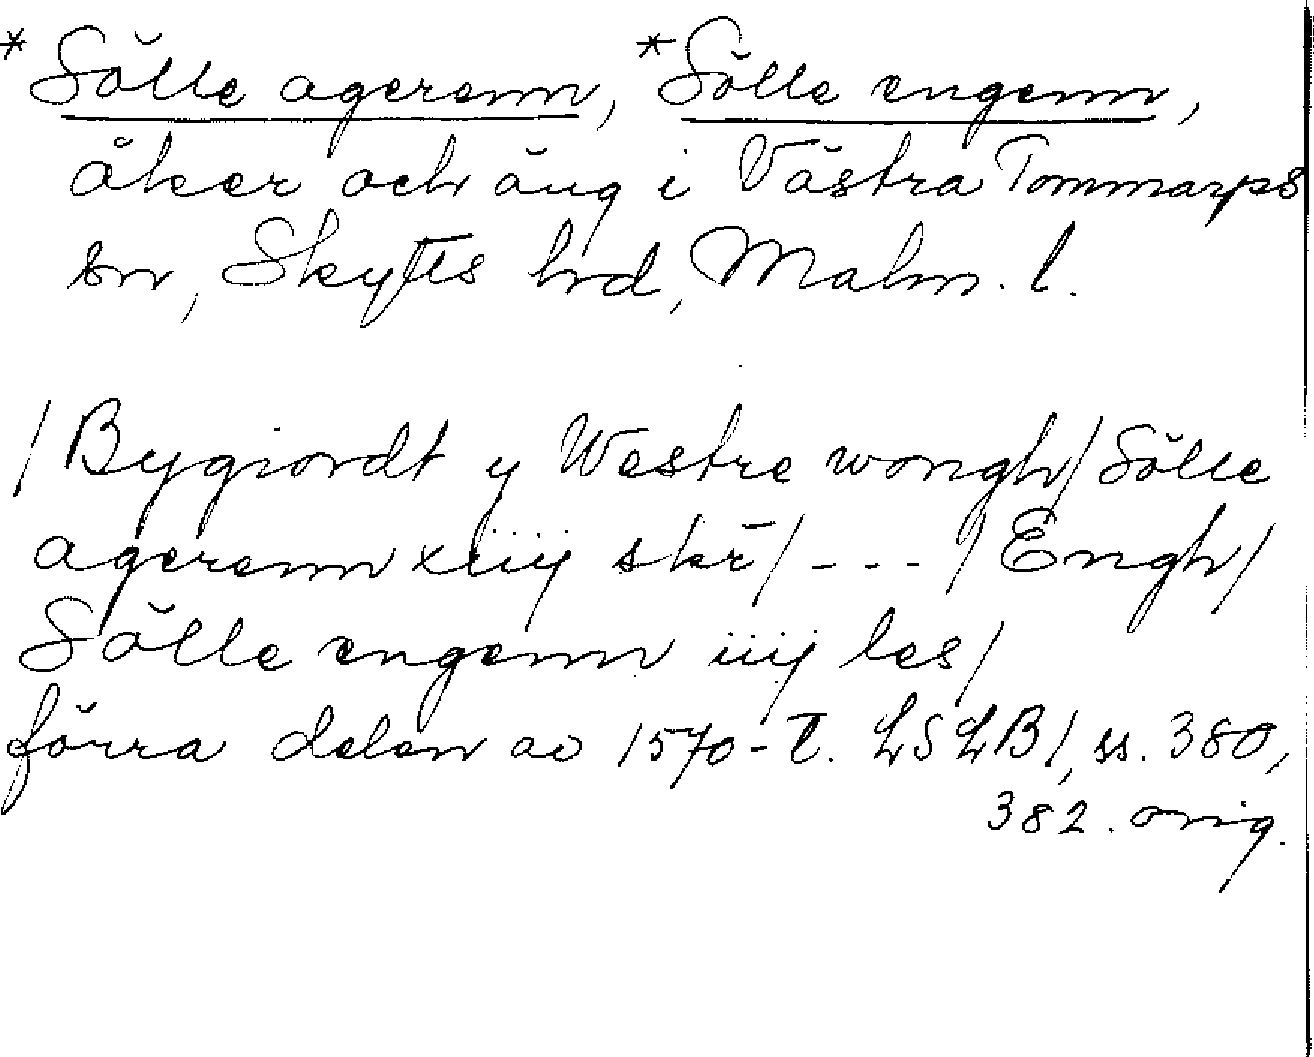 *Sölle agerenn, *Sölle engenn,
åker och äng i Västra Tommarps
sn, Skytts hd, Malm. l.
/Bygiordt y Westre wongh/ Sölle
agerenn xiiij skr̄/ - - - /Engh/
Sölle engenn iiij les/
förra delen av 1570-t. LSLB/, ss. 380,
382. orig.